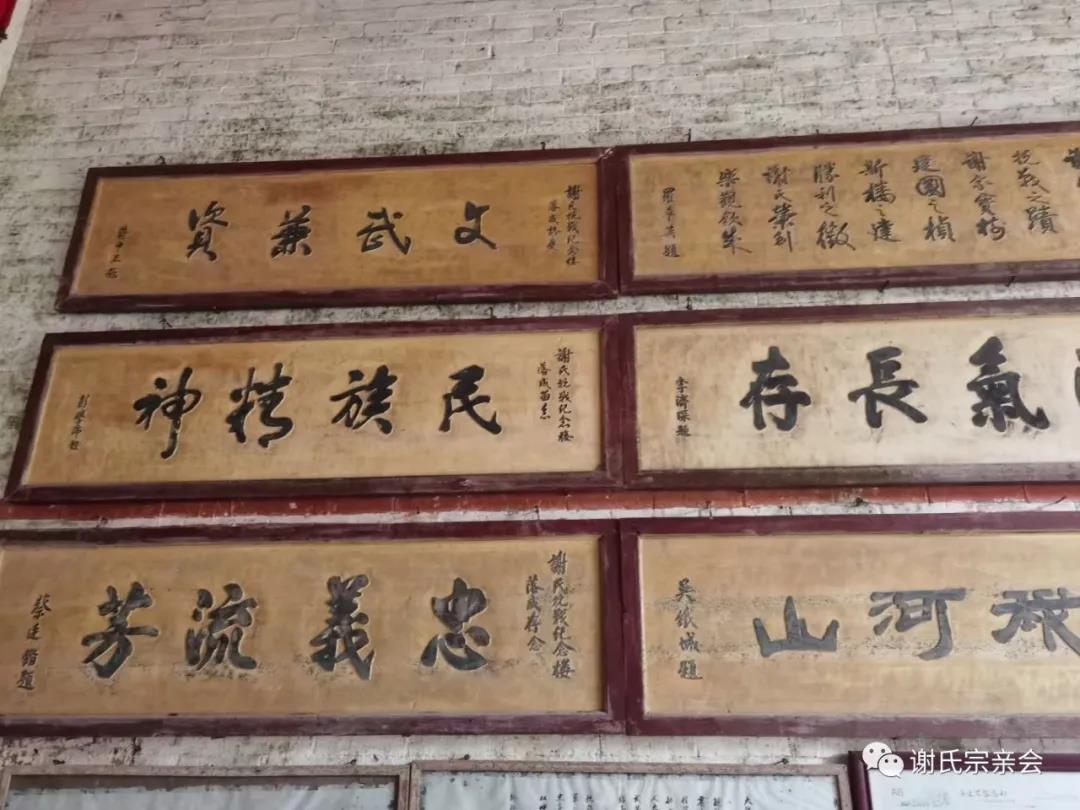 謝氏抗戰紀念樓
落成
文武兼資
抗戰之蹟
謝家寶樹
建國之楨
斯樓之建
勝利之徵
謝氏築創
樂觀欣集
羅卓英題
謝氏抗戰紀念樓
落成留念
民族精神
氣長存
李濟琛題
謝氏抗戰紀念樓
落成存念
忠義流芳
蔡廷鍇題
河山
吳鐵城題
谢氏宗亲会